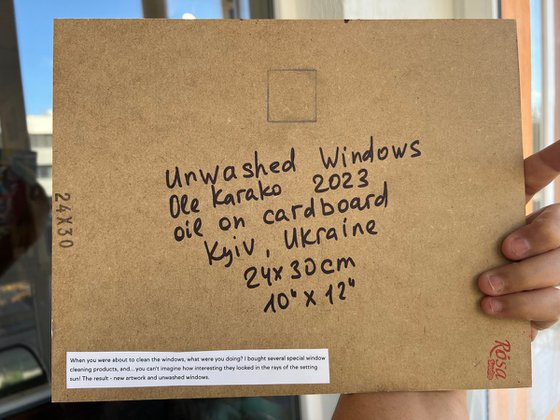 Unwashed Windows
Ole Karako 2023
oil on cardboard
Kyiv, Ukraine
24x30cm
10" x 12"
24X30
When you were about to clean the windows, what were you doing? I bought several special window
cleaning products, and... you can't imagine how interesting they looked in the rays of the setting
sun! The result - new artwork and unwashed windows.
Rosa